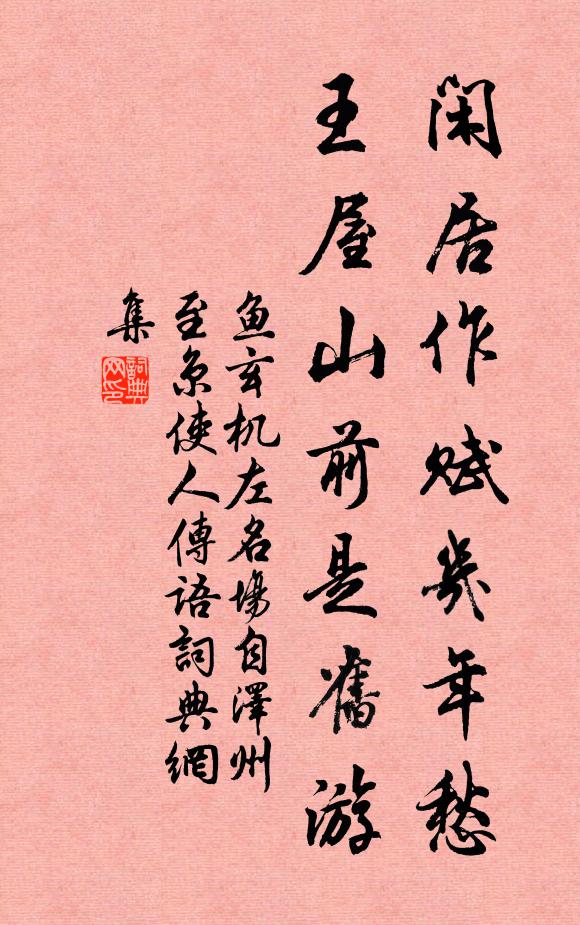 閑居作賦幾年愁
王屋山前是舊游
魚玄机左名場自澤州
至京使人傳語詞典網
集
詞典网印